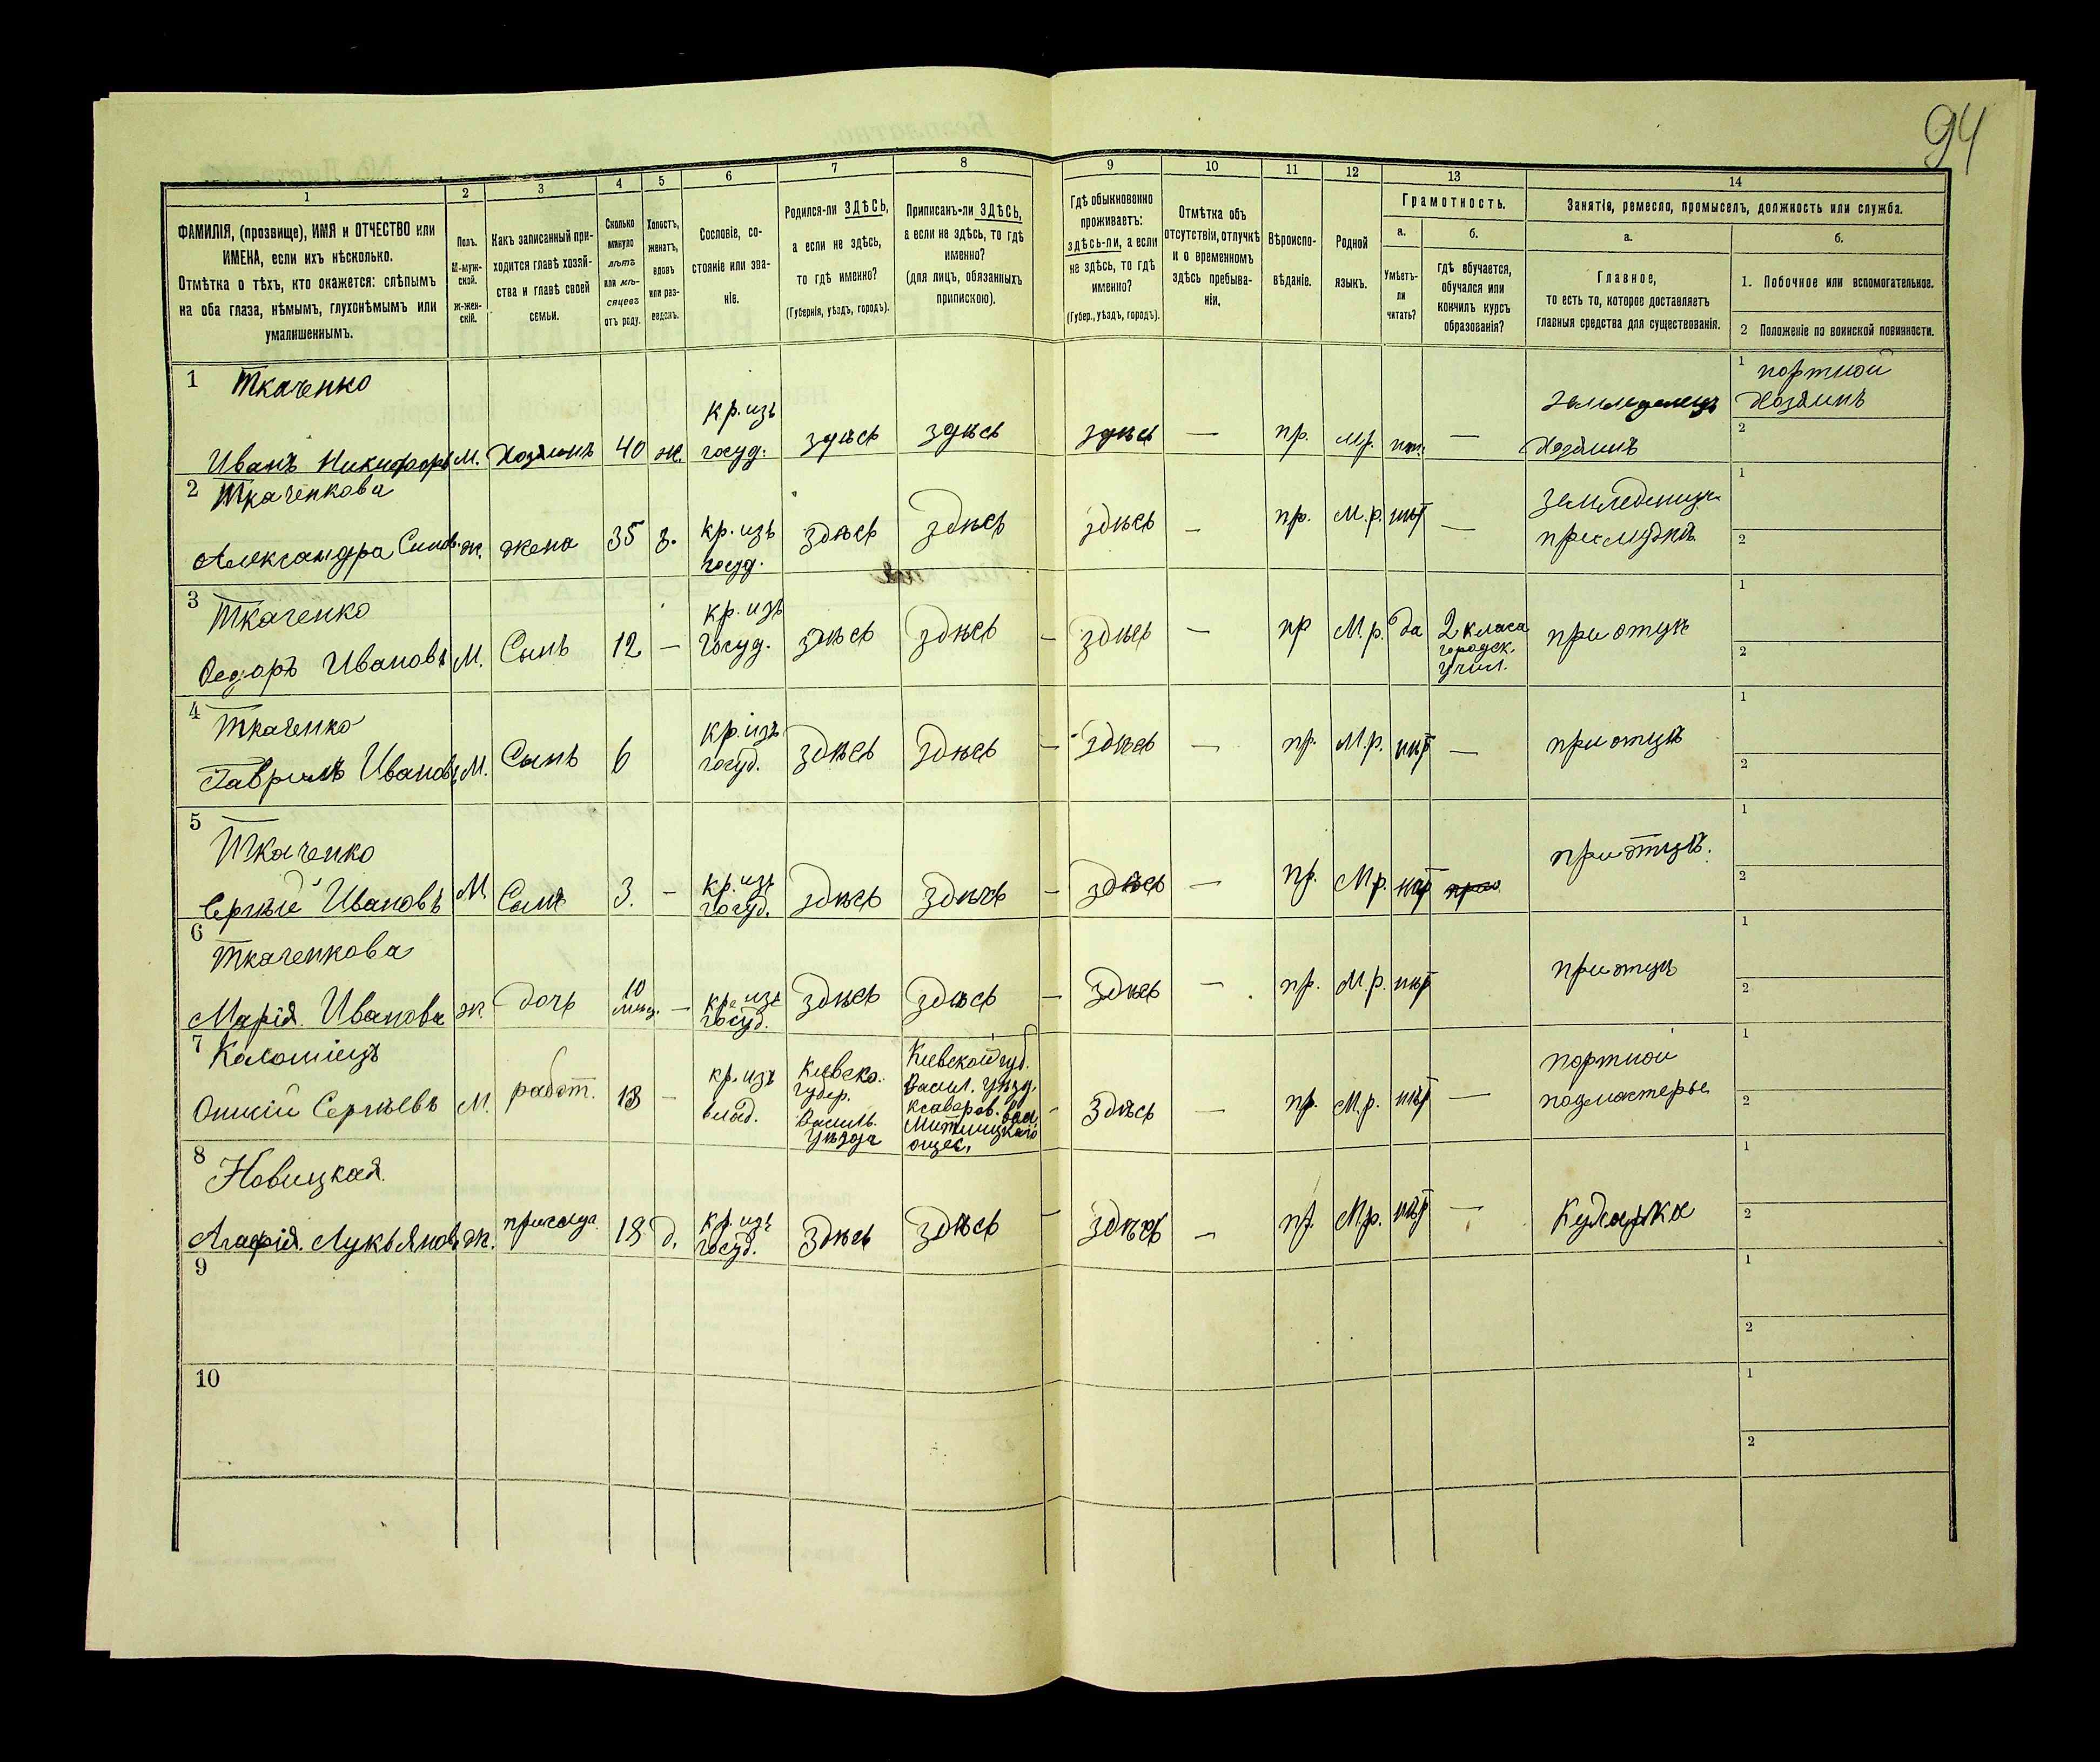 94
1
2
3
4
5
6
7
8
9
10
11
12
13
14
ФАМИЛІЯ, (прозвище), ИМЯ и ОТЧЕСТВО или
ИМЕНА, если ихъ нѣсколько.
Отмѣтка о тѣхъ, кто окажется: слѣпымъ
на оба глаза, нѣмымъ, глухонѣмымъ или
умалишеннымъ.
Полъ.
М-муж-
ской.
Ж-жен-
скій.
Какъ записанный при-
ходится главѣ хозяй-
ства и главѣ своей
семьи.
Сколько
минуло
лѣтъ
или мѣ-
сяцевъ
отъ роду.
Холостъ,
женатъ,
вдовъ
или раз-
веденъ.
Сословіе, со-
стояніе или зва-
ніе.
Родился-ли ЗДѢСЬ,
а если не здѣсь,
то гдѣ именно?
(Губернія, уѣздъ, городъ).
Приписанъ-ли ЗДѢСЬ,
а если не здѣсь, то гдѣ
именно?
(для лицъ, обязанныхъ
припискою).
Гдѣ обыкновенно
проживаетъ:
здѣсь-ли, а если
не здѣсь, то гдѣ
именно?
(Губер., уѣздъ, городъ).
Отмѣтка объ
отсутствіи, отлучкѣ
и о временномъ
здѣсь пребыва-
ніи.
Вѣроиспо-
вѣданіе.
Родной
языкъ.
Грамотность.
а.
Умѣетъ-
ли
читать?
б.
гдѣ обучается,
обучался или
кончилъ курсъ
образованія?
Занятіе, ремесло, промыселъ, должность или служба.
а.
Главное,
то есть то, которое доставляетъ
главныя средства для существованія.
б.
1. Побочное или вспомогательное.
2 Положеніе по воинской повинности.
1 Ткаченко
Иванъ Никифоръ М. Хозяинъ 40 ж. кр. изъ
госуд. здѣсь здѣсь здѣсь — пр. М.р. — земледелецъ
Хозяинъ
1 портной
Хозяинъ
2
2 Ткаченкова
Александра ж. жена 35 з. кр. изъ
госуд. здѣсь здѣсь здѣсь — пр. М.р. нѣт —
при мужѣ
1
2
3 Ткаченко
Ѳедоръ Ивановъ М. Сынъ 12 — кр. изъ
госуд. здѣсь здѣсь — здѣсь — пр М.р. да 2 класа
городск.
Учил. при отцѣ
1
2
4 Ткаченко
Гаврилъ Ивановъ М. Сынъ 6 кр. изъ
госуд. здѣсь здѣсь — здѣсь — пр. М.р. нѣт — при отцѣ
1
2
5 Ткаченко
Сергѣй Ивановъ М. Сынъ 3. — кр. изъ
госуд. здѣсь здѣсь — здѣсь — пр. М.р. нѣт при отцѣ.
1
2
6 Ткаченкова
Марія Иванова ж. дочь 10
мѣс. — кр. изъ
госуд. здѣсь здѣсь — здѣсь — пр. М.р. нѣт при отцѣ
1
2
7 Коломіецъ
Сергѣевъ М. работ. 18 — кр. изъ
влад. Кіевско.
губер.
Василь.
Уѣзда Кіевской губ.
Васил. уѣзд.
Ксаверов. Вол.
Митницкаго
— здѣсь — пр. М.р. нѣт — портной
подмастерье
1
2
8 Новицкая
Агафія Лукьянов. ж. 18 д. кр. изъ
госуд. здѣсь здѣсь — здѣсь — пр. М.р. нѣт — Кухарка
1
2
9
1
2
10
1
2